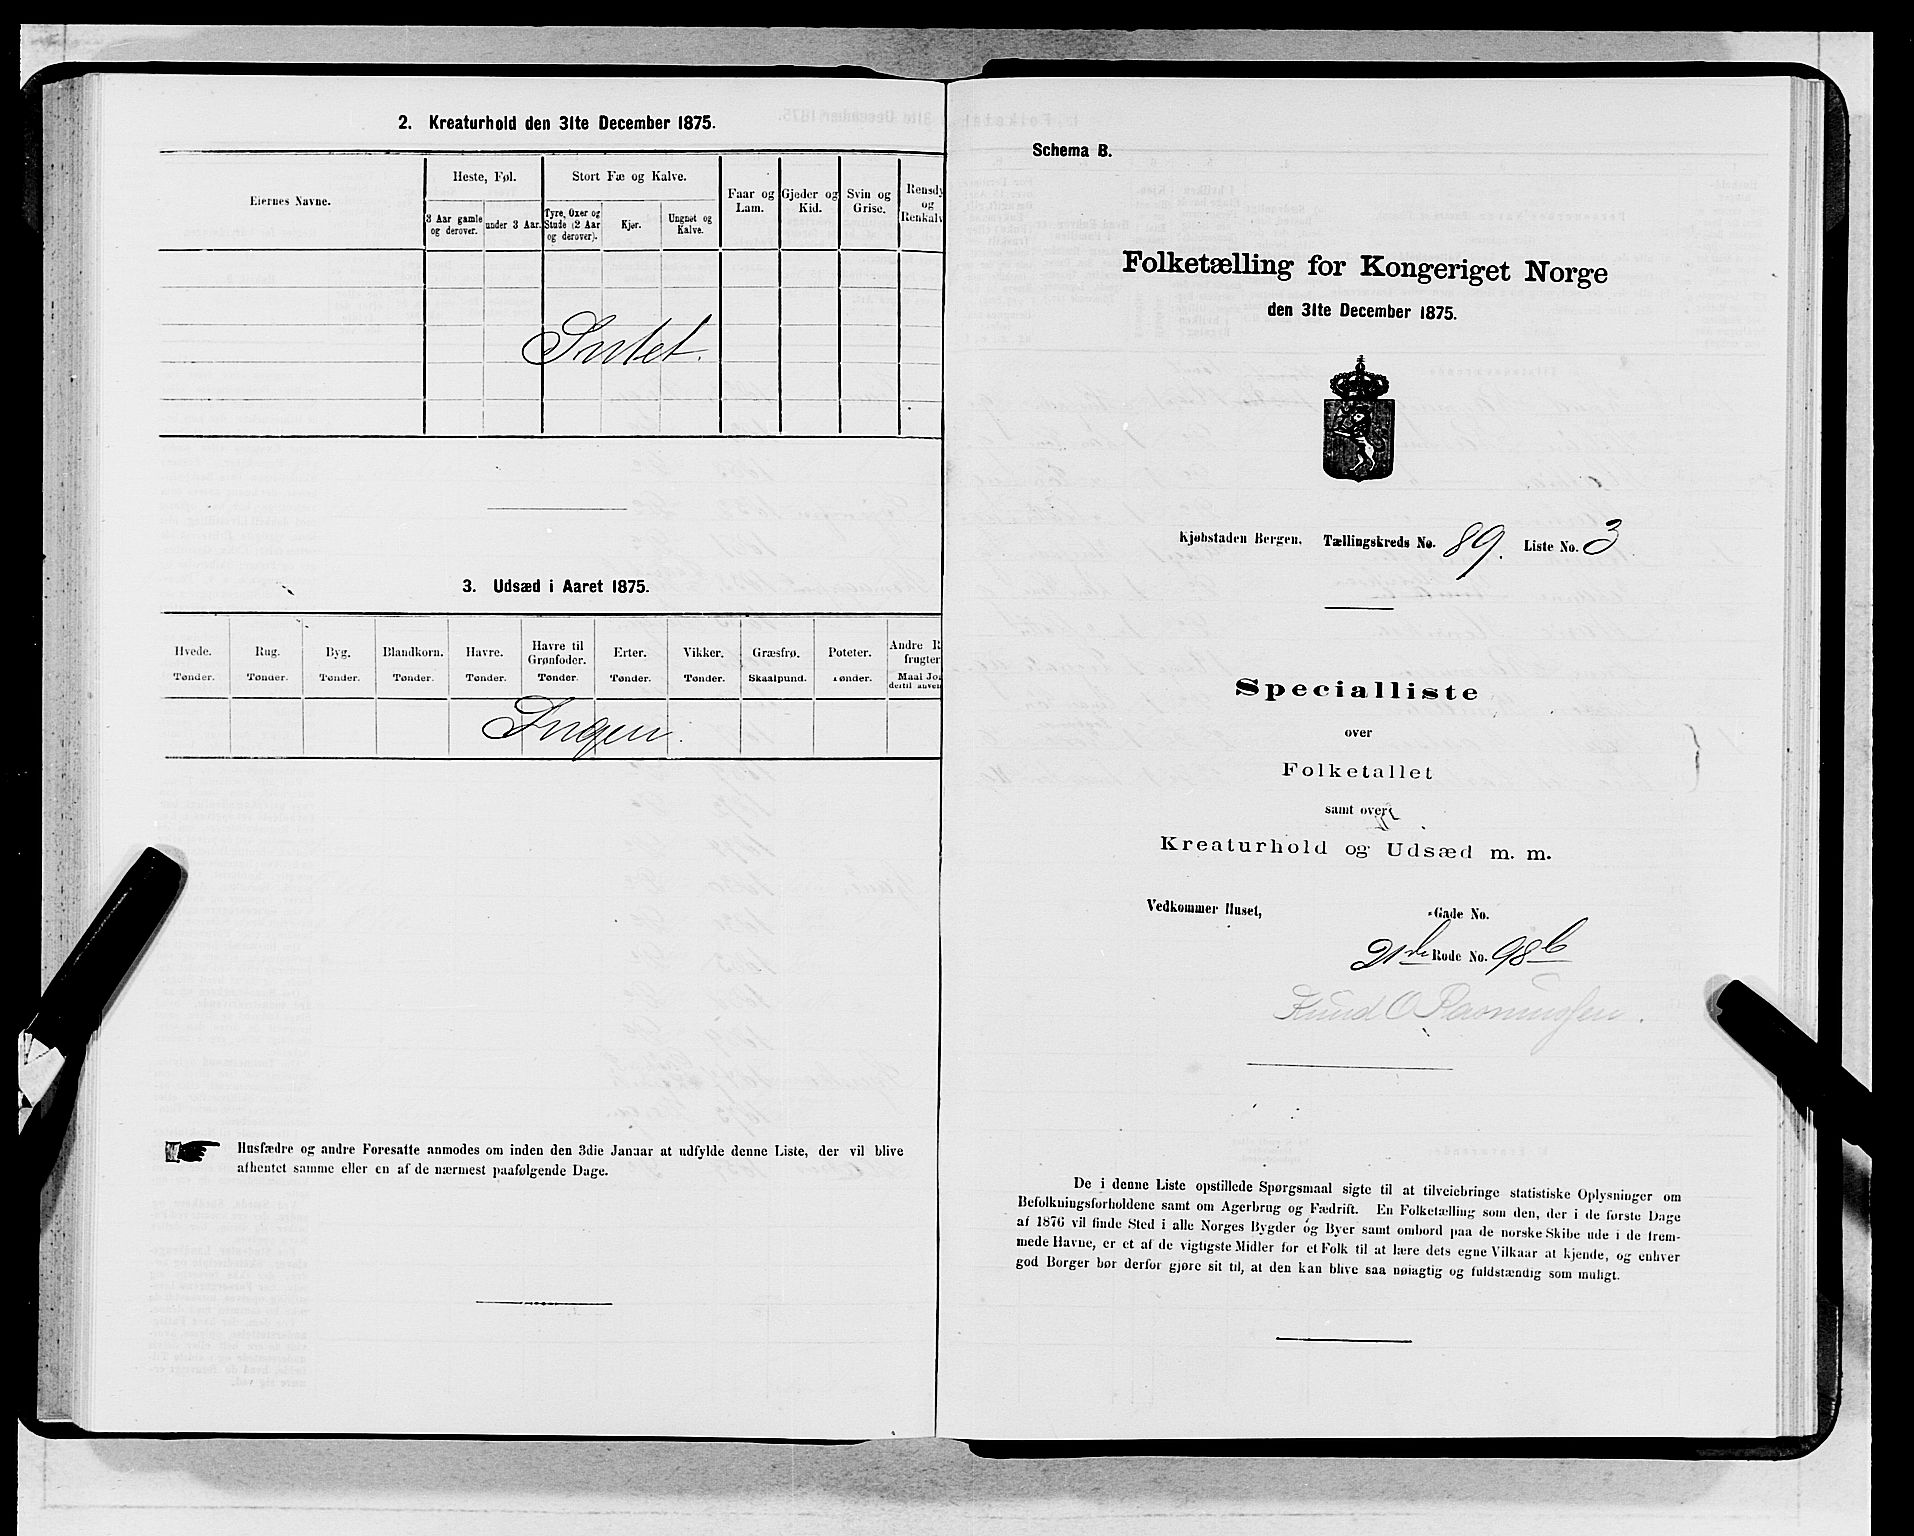 2. Kreaturhold den 31te December 1875.
Eiernes Navne.
Heste, Føl.
Stort Fæ og Kalve.
Faar og Lam.
Gjeder og Kid.
Svin og Grise.
Rensdy
og
Renkalv
3 Aar gamle og derover.
under 3 Aar.
Tyre, Oxer og Stude (2 Aar og derover).
Kjør.
Ungnøt og Kalve.
Intet.
3. Udsæd i Aaret 1875.
Hvede. Rug. Byg. Blandkorn. Havre. Havre til Grønfoder. Erter. Vikker. Græsfrø. Poteter. Andre R
frugter
Tønder. Tønder. Tønder. Tønder. Tønder. Tønder. Tønder. Tønder. Skaalpund. Tønder. Maal Jo
dertil anven
Ingen.
Husfædre og andre Foresatte anmodes om inden den 3die Januar at udfylde denne Liste, der vil blive
afhentet samme eller en af de nærmest paafølgende Dage.
Schema B.
Folketælling for Kongeriget Norge
den 31te December 1875.
Kjøbstaden Bergen. Tællingskreds No. 89. Liste No. 3
Specialliste
over
Folketallet
samt over
Kreaturhold og Udsæd m. m.
Vedkommer Huset, -Gade No.
21de Rode No. 98b
Knud O Rasmussen.
De i denne Liste opstillede Spørgsmaal sigte til at tilveiebringe statistiske Oplysninger om
Befolkningsforholdene samt om Agerbrug og Fædrift. En Folketælling som den, der i de første Dage
af 1876 vil finde Sted i alle Norges Bygder og Byer samt ombord paa de norske Skibe ude i de frem-
mede Havne, er et af de vigtigste Midler for et Folk til at lære dets egne Vilkaar at kjende, og enhver
god Borger bør derfor gjøre sit til, at den kan blive saa nøiagtig og fuldstændig som muligt.